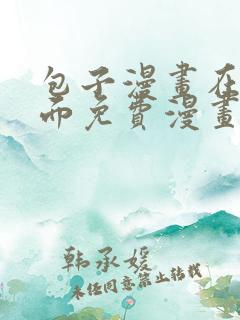 包子漫畫在
而免費漫畫
韩承媛
未经同意禁止转载